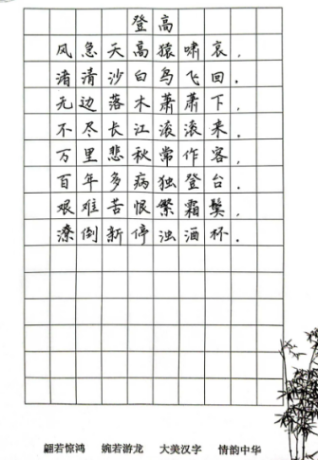 登高
风急天高猿啸哀，
渚清沙白鸟飞回。
无边落木萧萧下，
不尽长江滚滚来。
万里悲秋常作客，
百年多病独登台。
艰难苦恨繁霜鬓，
潦倒新停浊酒杯。
翩若惊鸿 婉若游龙 大美汉字 情韵中华